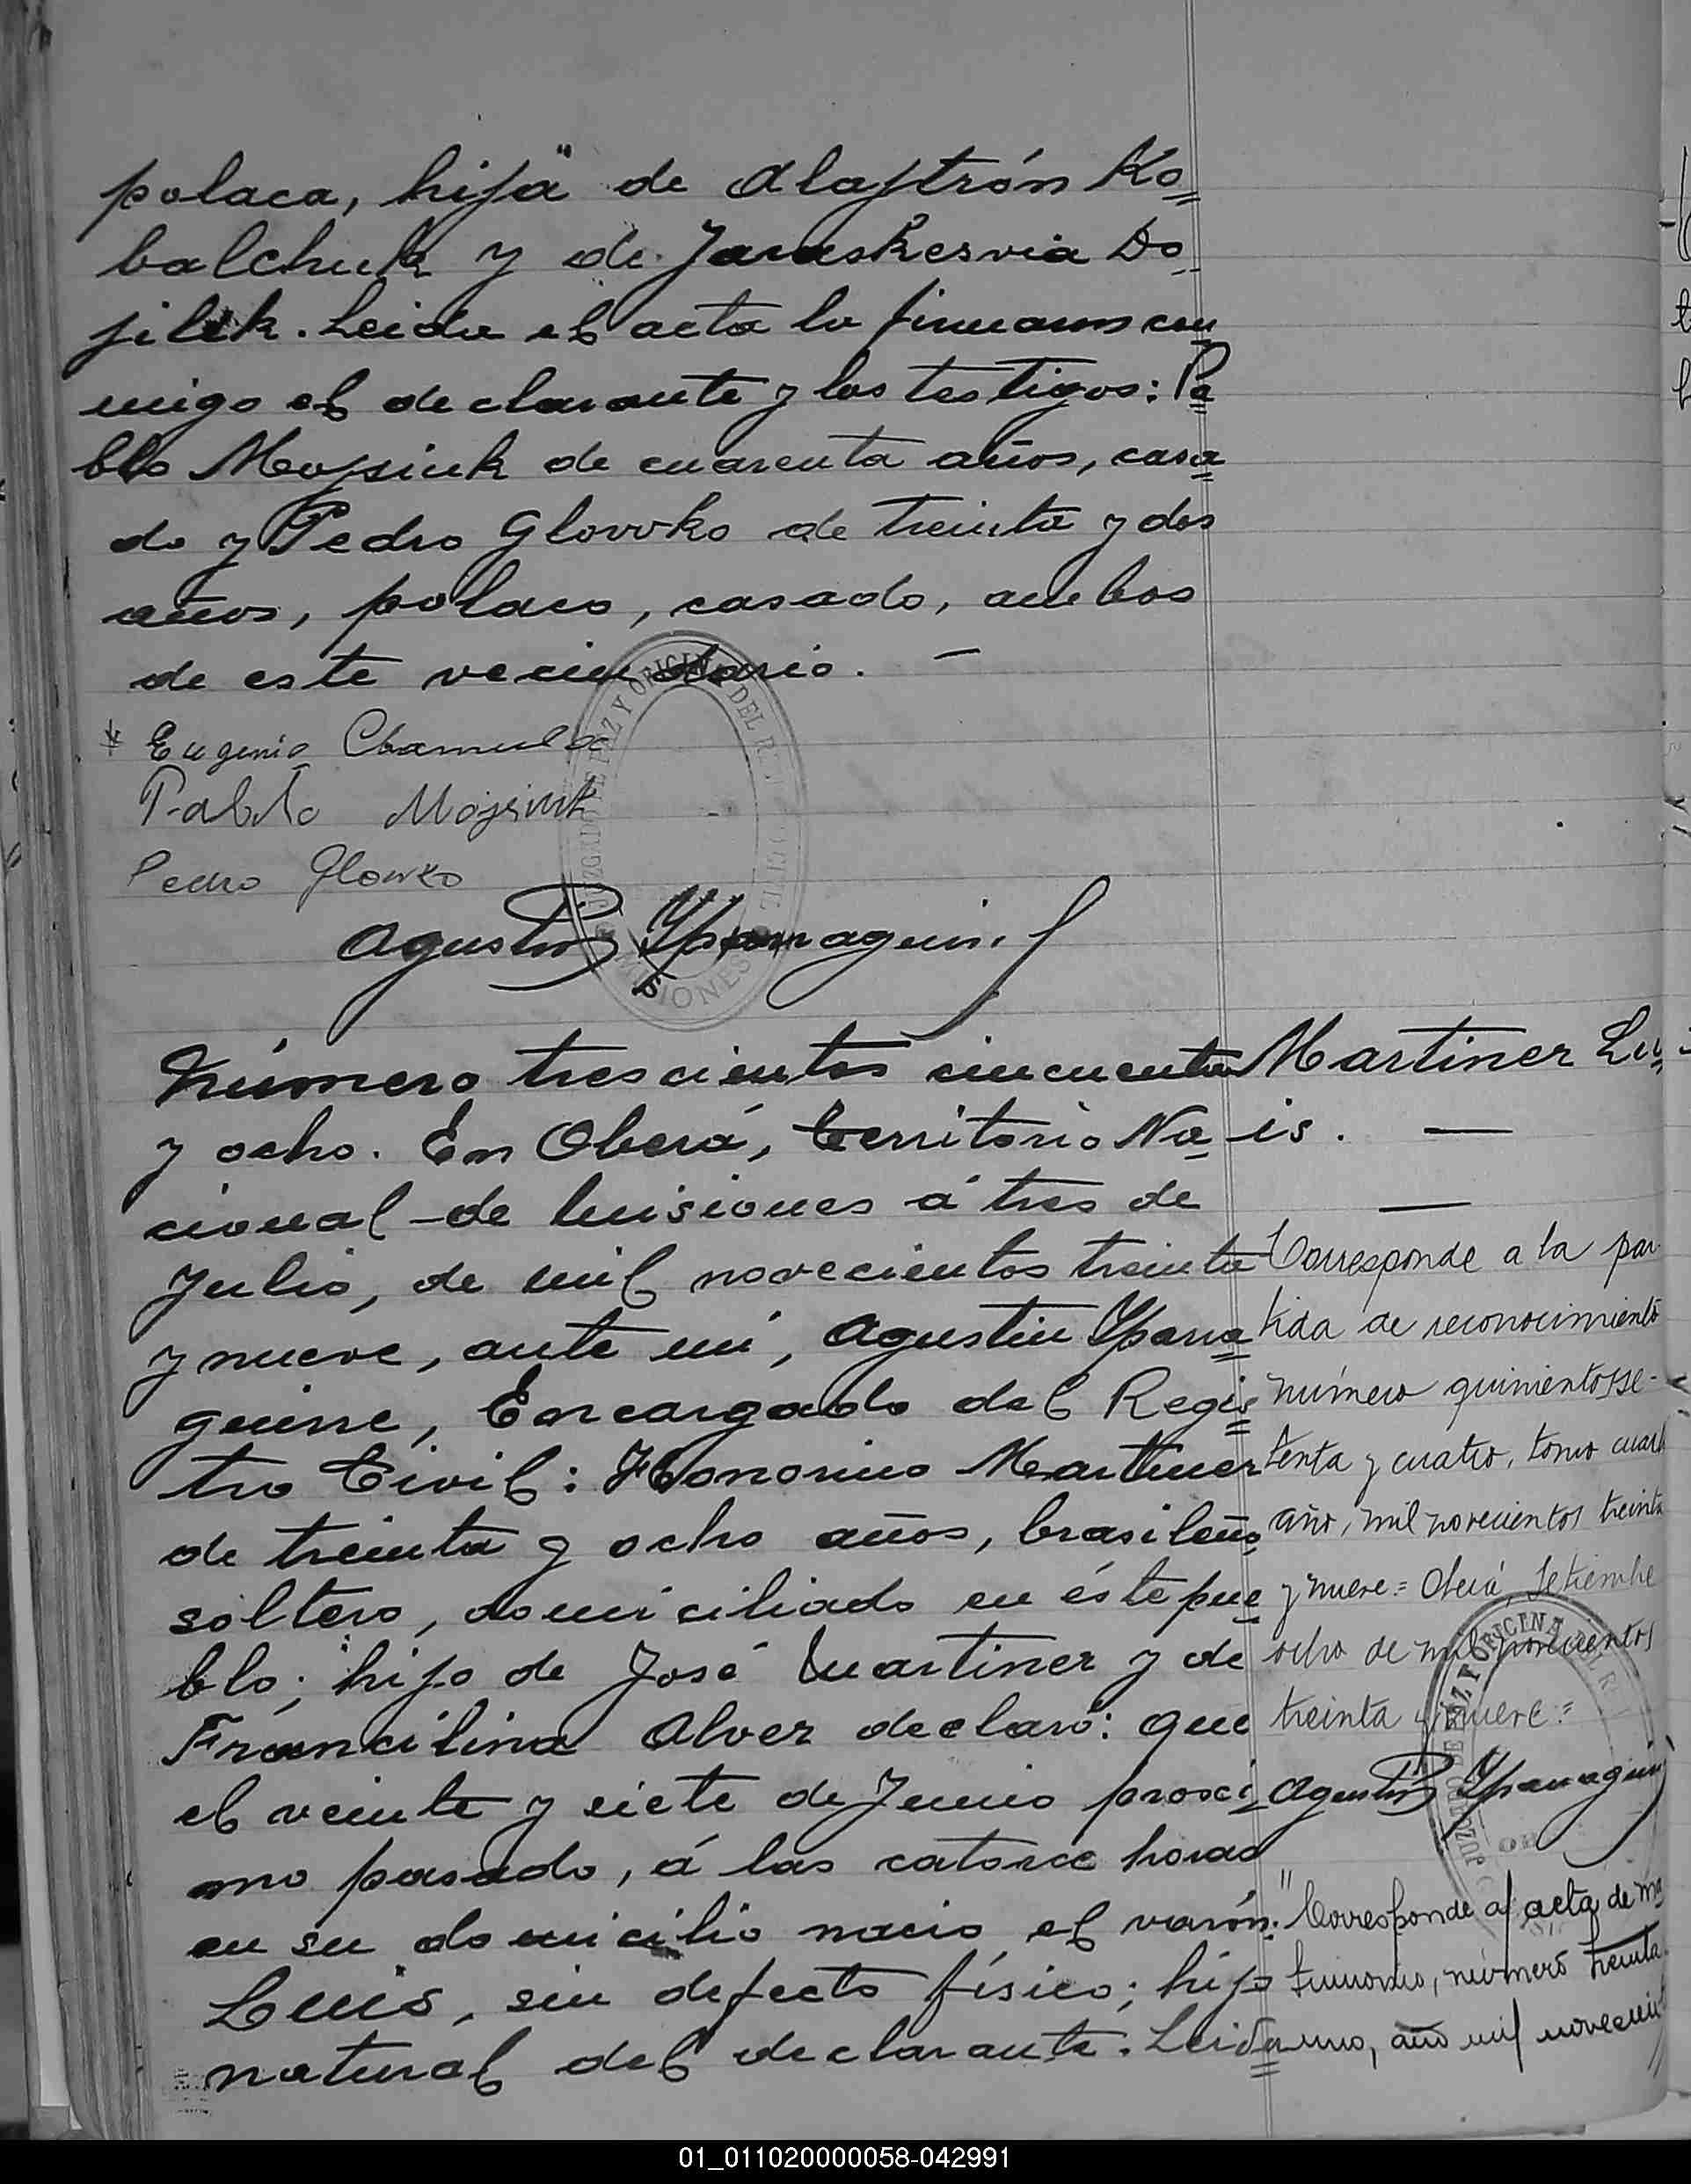 polaca, hija de Alajtrón Ko=
balchuk y de Jaraskesvia Do=
jilek. Leida el acta la firmaron con
migo el declarante y los testigos: Pa=
blo Mojsiuk de cuarenta años, casa=
do y Pedro Glovvko de treinta y dos
años, polaco, casado, ambos
de este vecindario. —
Eugenio
Pablo Mojsiuk
Pedro Glowko
JUZGADO DE PAZ Y OFICINA DEL R. CIVIL
MISIONES
Agustin Yparraguirre
Número trescientos cincuenta
y ocho. En Oberá, territorio Na=
cional de Misiones á tres de
Julio, de mil novecientos treinta
y nueve, ante mi, Agustin Yparra=
guirre, Encargado del Regis=
tro Civil: Honorino Martinez
de treinta y ocho años, brasileño,
soltero, domiciliado en éste pue=
blo; hijo de José Martinez y de
Francilina Alvez declaró: que
el veinte y siete de Junio proxi=
mo pasado, á las catorce horas
en su domicilio nacio el varón:
Luis, sin defecto físico; hijo
natural del declarante. Leida
Martinez Lu=
is. —
—
Corresponde a la par-
tida de reconocimiento
número quinientos se-
tenta y cuatro, tomo cuarto
año, mil novecientos treinta
y nueve = Oberá, Setiembre
ocho de mil novecientos
treinta y nueve =
Agustin Yparraguirre
JUZGADO DE PAZ Y OFICINA DEL R.
"Corresponde al acta de ma
trimonio, número treinta
uno, año mil novecient
01_011020000058-042991